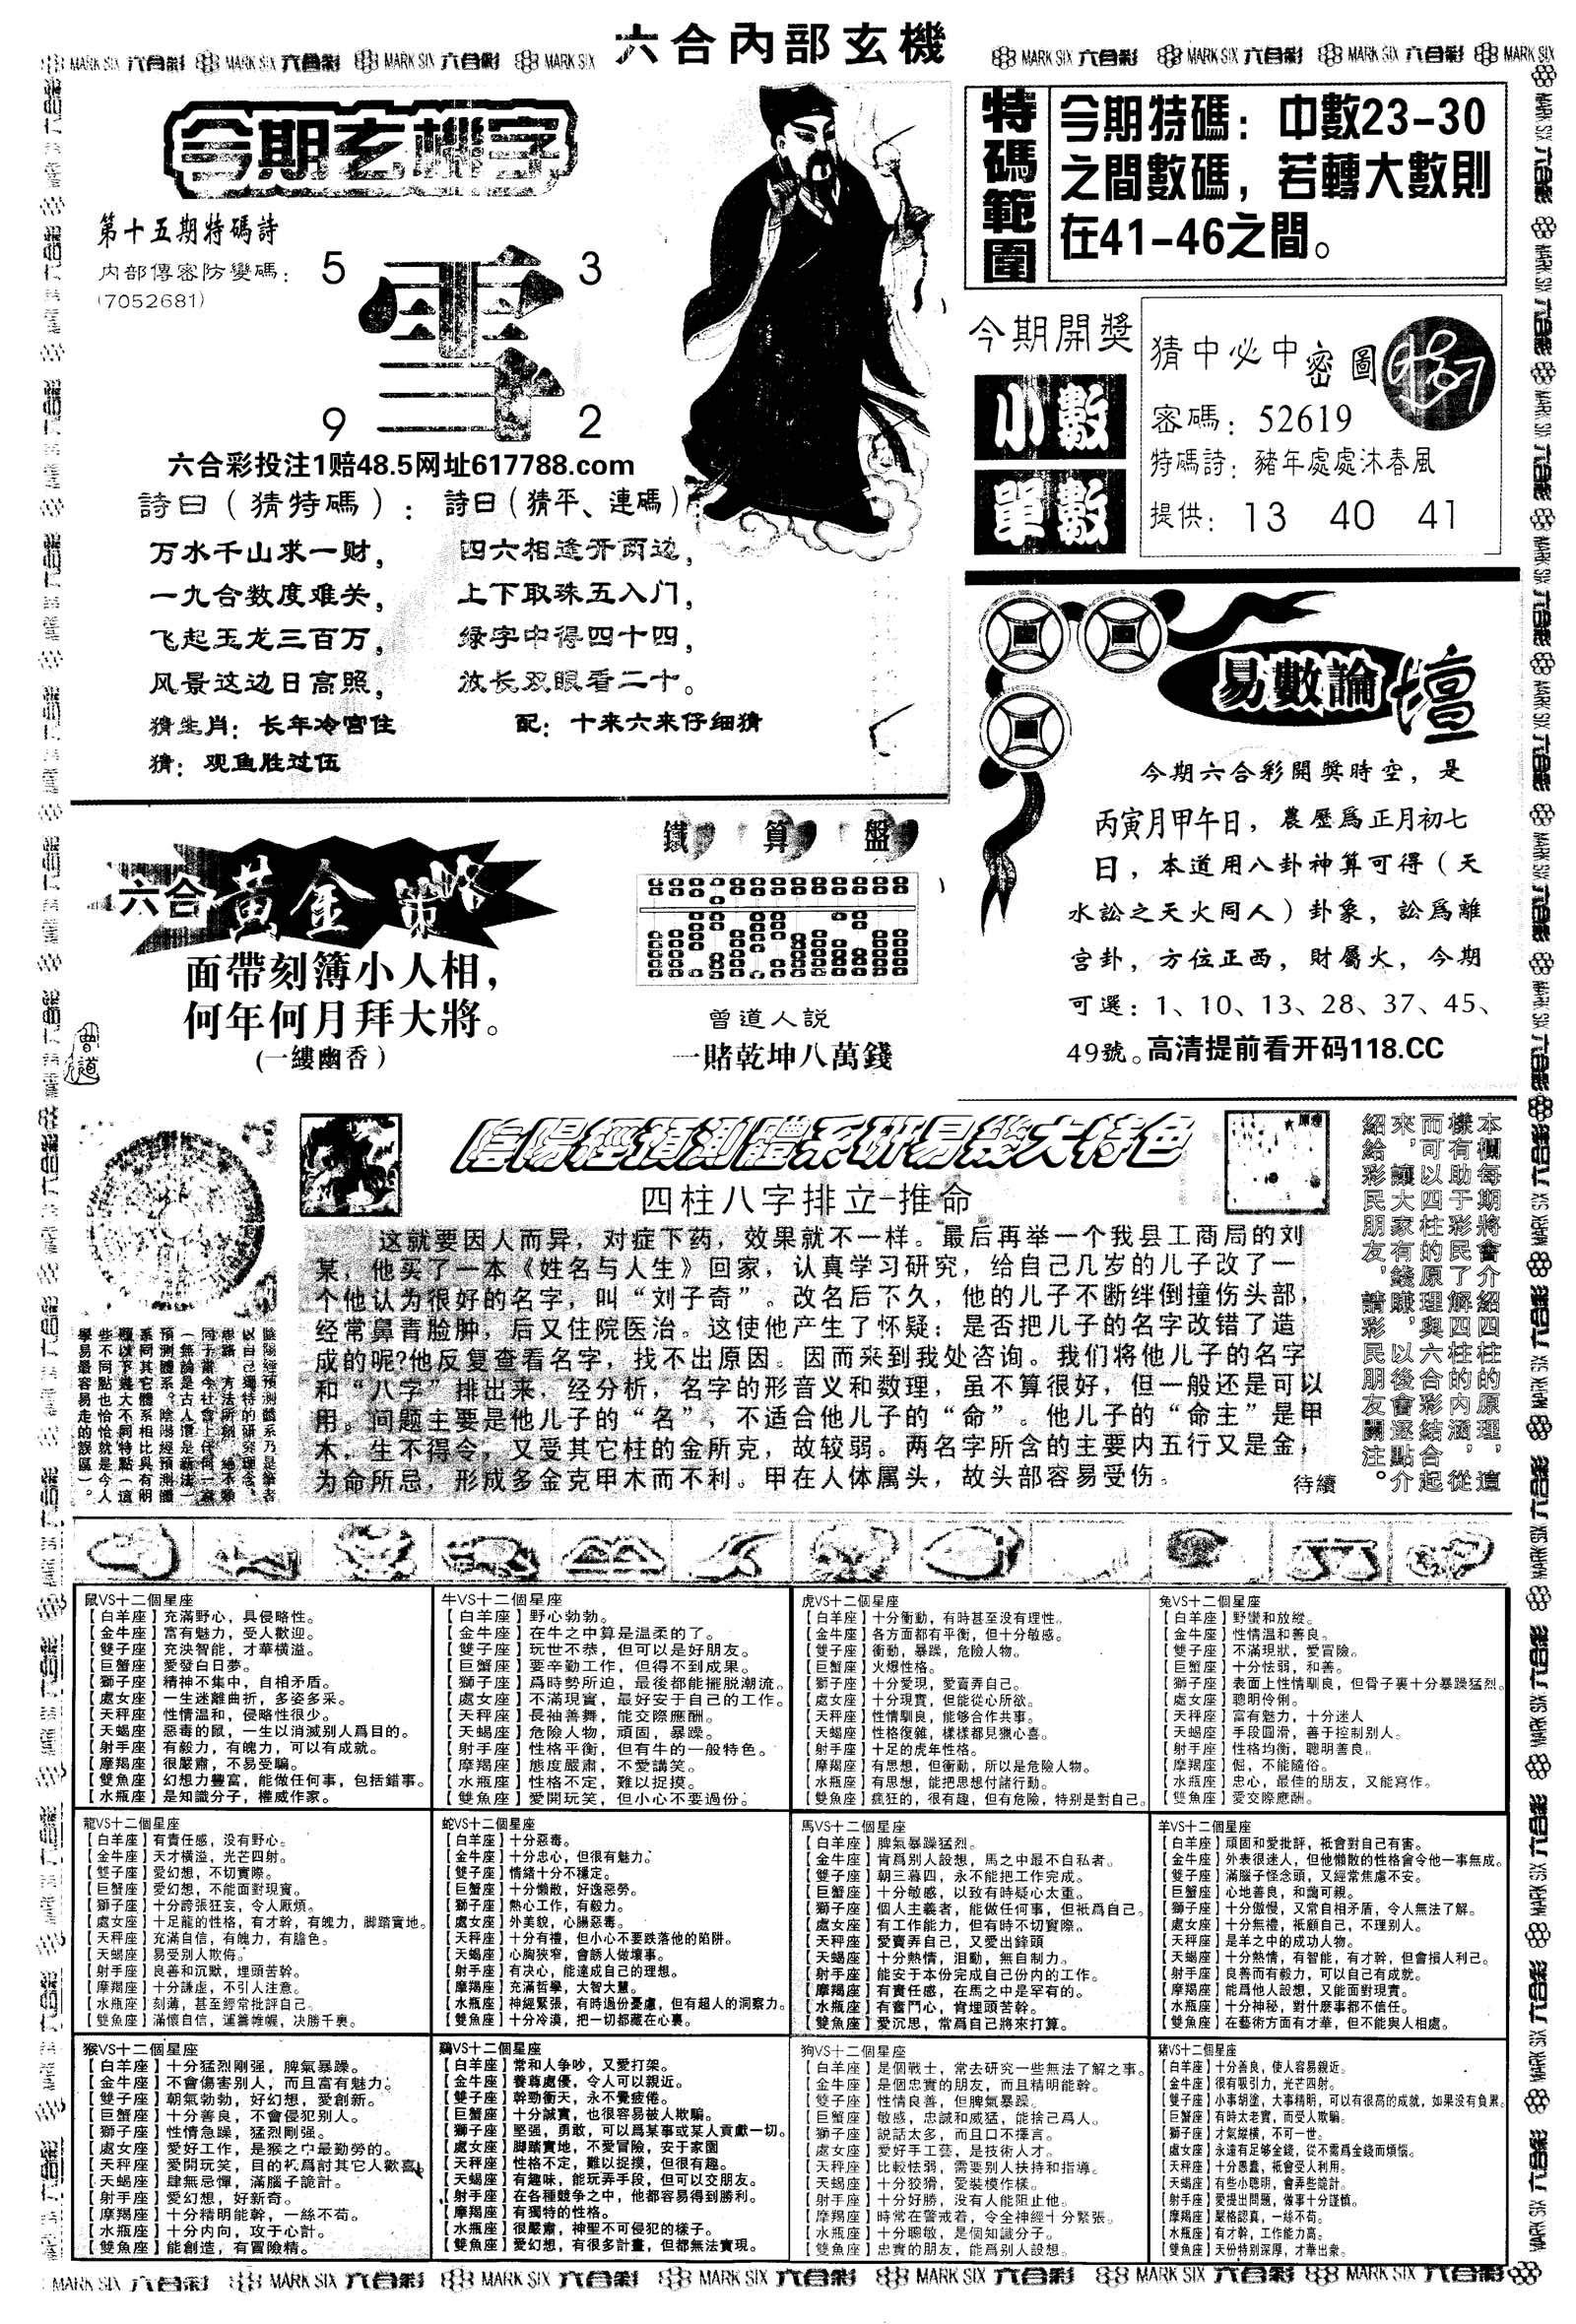 六合內部玄機
MARK SIX 六合彩
今期玄機字
第十五期特碼詩
内部傳密防變碼：
(7052681)
5
3
9
2
六合彩投注1赔48.5网址617788.com
詩曰（猜特碼）：
万水千山求一财，
一九合数度难关，
飞起玉龙三百万，
风景这边日高照，
猜生肖：长年冷宫住
猜：观鱼胜过伍
詩曰（猜平、連碼）
四六相逢开两边，
上下取珠五入门，
绿字中得四十四，
放长双眼看二十。
配：十来六来仔细猜
特碼範圍
今期特碼：中數23-30
之間數碼，若轉大數則
在41-46之間。
今期開獎
小數
單數
猜中必中密圖
密碼：52619
特碼詩：豬年處處沐春風
提供：13 40 41
易數論壇
今期六合彩開獎時空，是
丙寅月甲午日，農歷爲正月初七
日，本道用八卦神算可得（天
水訟之天火同人）卦象，訟爲離
宮卦，方位正西，財屬火，今期
可選：1、10、13、28、37、45、
49號。高清提前看开码118.CC
六合黃金策略
面帶刻簿小人相，
何年何月拜大將。
（一縷幽香）
曾道
鐵算盤
曾道人説
一賭乾坤八萬錢
陰陽經預測體系研易幾大特色
四柱八字排立-推命
这就要因人而异，对症下药，效果就不一样。最后再举一个我县工商局的刘
某，他买了一本《姓名与人生》回家，认真学习研究，给自己几岁的儿子改了一
个他认为很好的名字，叫“刘子奇”。改名后不久，他的儿子不断绊倒撞伤头部，
经常鼻青脸肿，后又住院医治。这使他产生了怀疑：是否把儿子的名字改错了造
成的呢?他反复查看名字，找不出原因。因而来到我处咨询。我们将他儿子的名字
和“八字”排出来，经分析，名字的形音义和数理，虽不算很好，但一般还是可以
用。问题主要是他儿子的“名”，不适合他儿子的“命”。他儿子的“命主”是甲
木，生不得令，又受其它柱的金所克，故较弱。两名字所含的主要内五行又是金，
为命所忌，形成多金克甲木而不利。甲在人体属头，故头部容易受伤。
待續
本欄每期將會介紹四柱的原理，這
樣有助于彩民了解四柱的内涵，從
而可以四柱的原理與六合彩結合起
來，讓大家有錢賺，以後會逐點介
紹給彩民朋友，請彩民朋友關注。
陰陽經預測體系乃是筆者
以自己獨特的研究理念、
思路、方法所創，絶不類
同于當今社會上任何一家
（無論是古人還是新法）
預測體系。陰陽經預測體
系同其它體系相比具有明
顯以下幾大不同特點（這
些不同點也恰恰就是今人
學易最容易走的誤區）。
鼠VS十二個星座
【白羊座】充滿野心，具侵略性。
【金牛座】富有魅力，受人歡迎。
【雙子座】充泱智能，才華橫溢。
【巨蟹座】愛發白日夢。
【獅子座】精神不集中，自相矛盾。
【處女座】一生迷離曲折，多姿多采。
【天秤座】性情温和，侵略性很少。
【天蝎座】惡毒的鼠，一生以消滅别人爲目的。
【射手座】有毅力，有魄力，可以有成就。
【摩羯座】很嚴肅，不易受騙。
【雙魚座】幻想力豐富，能做任何事，包括錯事。
【水瓶座】是知識分子，權威作家。
牛VS十二個星座
【白羊座】野心勃勃。
【金牛座】在牛之中算是溫柔的了。
【雙子座】玩世不恭，但可以是好朋友。
【巨蟹座】要辛勤工作，但得不到成果。
【獅子座】爲時勢所迫，最後都能擺脱潮流。
【處女座】不滿現實，最好安于自己的工作。
【天秤座】長袖善舞，能交際應酬。
【天蝎座】危險人物，頑固，暴躁。
【射手座】性格平衡，但有牛的一般特色。
【摩羯座】態度嚴肅，不愛講笑。
【水瓶座】性格不定，難以捉摸。
【雙魚座】愛開玩笑，但小心不要過份。
虎VS十二個星座
【白羊座】十分衝動，有時甚至没有理性。
【金牛座】各方面都有平衡，但十分敏感。
【雙子座】衝動，暴躁，危險人物。
【巨蟹座】火爆性格。
【獅子座】十分愛現，愛賣弄自己。
【處女座】十分現實，但能從心所欲。
【天秤座】性情馴良，能够合作共事。
【天蝎座】性格復雜，樣樣都見獵心喜。
【射手座】十足的虎年性格。
【摩羯座】有思想，但衝動，所以是危險人物。
【水瓶座】有思想，能把思想付諸行動。
【雙魚座】瘋狂的，很有趣，但有危險，特别是對自己。
兔VS十二個星座
【白羊座】野蠻和放縱。
【金牛座】性情温和善良。
【雙子座】不滿現狀，愛冒險。
【巨蟹座】十分怯弱，和善。
【獅子座】表面上性情馴良，但骨子裏十分暴躁猛烈。
【處女座】聰明伶俐。
【天秤座】富有魅力，十分迷人
【天蝎座】手段圓滑，善于控制别人。
【射手座】性格均衡，聰明善良。
【摩羯座】倔，不能隨俗。
【水瓶座】忠心，最佳的朋友，又能寫作。
【雙魚座】愛交際應酬。
龍VS十二個星座
【白羊座】有責任感，没有野心。
【金牛座】天才橫溢，光芒四射。
【雙子座】愛幻想，不切實際。
【巨蟹座】愛幻想，不能面對現實。
【獅子座】十分誇張狂妄，令人厭煩。
【處女座】十足龍的性格，有才幹，有魄力，脚踏實地。
【天秤座】充滿自信，有魄力，有膽色。
【天蝎座】易受别人欺侮。
【射手座】良善和沉默，埋頭苦幹。
【摩羯座】十分謙虚，不引人注意。
【水瓶座】刻薄，甚至經常批評自己。
【雙魚座】滿懷自信，運籌帷幄，决勝千裏。
蛇VS十二個星座
【白羊座】十分惡毒。
【金牛座】十分忠心，但很有魅力。
【雙子座】情緒十分不穩定。
【巨蟹座】十分懶散，好逸惡勞。
【獅子座】熱心工作，有毅力。
【處女座】外美貌，心腸惡毒。
【天秤座】十分有禮，但小心不要跌落他的陷阱。
【天蝎座】心胸狹窄，會誘人做壞事。
【射手座】有决心，能達成自己的理想。
【摩羯座】充滿哲學，大智大慧。
【水瓶座】神經緊張，有時過份憂慮，但有超人的洞察力。
【雙魚座】十分冷漠，把一切都藏在心裏。
馬VS十二個星座
【白羊座】脾氣暴躁猛烈。
【金牛座】肯爲别人設想，馬之中最不自私者。
【雙子座】朝三暮四，永不能把工作完成。
【巨蟹座】十分敏感，以致有時疑心太重。
【獅子座】個人主義者，能做任何事，但衹爲自己。
【處女座】有工作能力，但有時不切實際。
【天秤座】愛賣弄自己，又愛出鋒頭
【天蝎座】十分熱情，泪動，無自制力。
【射手座】能安于本份完成自己份内的工作。
【摩羯座】有責任感，在馬之中是罕有的。
【水瓶座】有奮鬥心，肯埋頭苦幹。
【雙魚座】愛沉思，常爲自己將來打算。
羊VS十二個星座
【白羊座】頑固和愛批評，衹會對自己有害。
【金牛座】外表很迷人，但他懶散的性格會令他一事無成。
【雙子座】滿腦子怪念頭，又經常焦慮不安。
【巨蟹座】心地善良，和藹可親。
【獅子座】十分傲慢，又常自相矛盾，令人無法了解。
【處女座】十分無禮，衹顧自己，不理别人。
【天秤座】是羊之中的成功人物。
【天蝎座】十分熱情，有智能，有才幹，但會損人利己。
【射手座】良善而有毅力，可以自己有成就。
【摩羯座】能爲他人設想，又能面對現實。
【水瓶座】十分神秘，對什麽事都不信任。
【雙魚座】在藝術方面有才華，但不能與人相處。
猴VS十二個星座
【白羊座】十分猛烈剛强，脾氣暴躁。
【金牛座】不會傷害别人，而且富有魅力。
【雙子座】朝氣勃勃，好幻想，愛創新。
【巨蟹座】十分善良，不會侵犯别人。
【獅子座】性情急躁，猛烈剛强。
【處女座】愛好工作，是猴之中最勤勞的。
【天秤座】愛開玩笑，目的衹爲討其它人歡喜。
【天蝎座】肆無忌憚，滿腦子詭計。
【射手座】愛幻想，好新奇。
【摩羯座】十分精明能幹，一絲不苟。
【水瓶座】十分内向，攻于心計。
【雙魚座】能創造，有冒險精。
鷄VS十二個星座
【白羊座】常和人争吵，又愛打架。
【金牛座】養尊處優，令人可以親近。
【雙子座】幹勁衝天，永不覺疲倦。
【巨蟹座】十分誠實，也很容易被人欺騙。
【獅子座】堅强，勇敢，可以爲某事或某人貢獻一切。
【處女座】脚踏實地，不愛冒險，安于家園
【天秤座】性格不定，難以捉摸，但很有趣。
【天蝎座】有趣味，能玩弄手段，但可以交朋友。
【射手座】在各種競争之中，他都容易得到勝利。
【摩羯座】有獨特的性格。
【水瓶座】很嚴肅，神聖不可侵犯的樣子。
【雙魚座】愛幻想，有很多計畫，但都無法實現。
狗VS十二個星座
【白羊座】是個戰士，常去研究一些無法了解之事。
【金牛座】是個忠實的朋友，而且精明能幹。
【雙子座】性情良善，但脾氣暴躁。
【巨蟹座】敏感，忠誠和威猛，能捨己爲人。
【獅子座】説話太多，而且口不擇言。
【處女座】愛好手工藝，是技術人才。
【天秤座】比較怯弱，需要别人扶持和指導。
【天蝎座】十分狡猾，愛裝模作樣。
【射手座】十分好勝，没有人能阻止他。
【摩羯座】時常在警戒着，令全神經十分緊張。
【水瓶座】十分聰敏，是個知識分子。
【雙魚座】忠實的朋友，能爲别人設想。
猪VS十二個星座
【白羊座】十分善良，使人容易親近。
【金牛座】很有吸引力，光芒四射。
【雙子座】小事胡塗，大事精明，可以有很高的成就，如果没有負累。
【巨蟹座】有時太老實，而受人欺騙。
【獅子座】才氣縱橫，不可一世。
【處女座】永遠有足够金錢，從不需爲金錢而煩惱。
【天秤座】十分愚蠢，衹會受人利用。
【天蝎座】有些小聰明，會弄些詭計。
【射手座】愛提出問題，做事十分謹慎。
【摩羯座】嚴格認真，一絲不苟。
【水瓶座】有才幹，工作能力高。
【雙魚座】天份特别深厚，才華出衆。
MARK SIX 六合彩